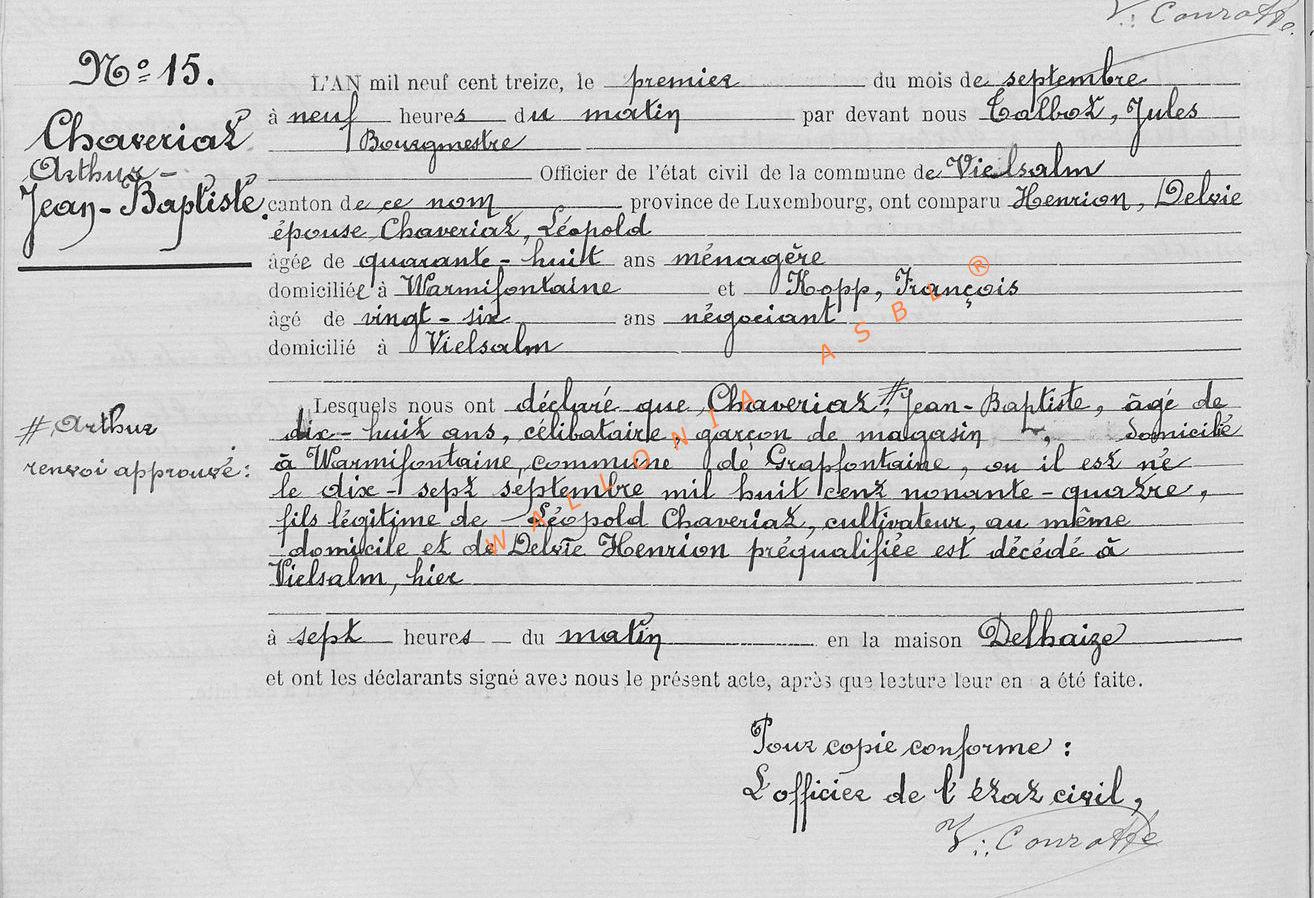 V. Conrotte.
Nº 15.
Chaveriat
Arthur-
Jean-Baptiste.
L'AN mil neuf cent treize, le premier du mois de septembre
à neuf heures du matin par devant nous Talbot, Jules
Bourgmestre
Officier de l'état civil de la commune de Vielsalm
canton de ce nom province de Luxembourg, ont comparu Henrion, Delvie
épouse Chaveriat, Léopold
âgée de quarante-huit ans ménagère
domiciliée à Warmifontaine et Kopp, François
âgé de vingt-six ans négociant
domicilié à Vielsalm
Lesquels nous ont déclaré que Chaveriat, # Jean-Baptiste, âgé de
dix-huit ans, célibataire, garçon de magasin, domicilié
à Warmifontaine, commune de Grapfontaine, ou il est né
le dix-sept septembre mil huit cent nonante-quatre,
fils légitime de Léopold Chaveriat, cultivateur, au même
domicile et de Delvie Henrion préqualifiée est décédé à
Vielsalm, hier
à sept heures du matin en la maison Delhaize
et ont les déclarants signé avec nous le présent acte, après que lecture leur en a été faite.
# Arthur
renvoi approuvé:
Pour copie conforme :
L'officier de l'état civil,
V. Conrotte
WALLONIA ASBL ®